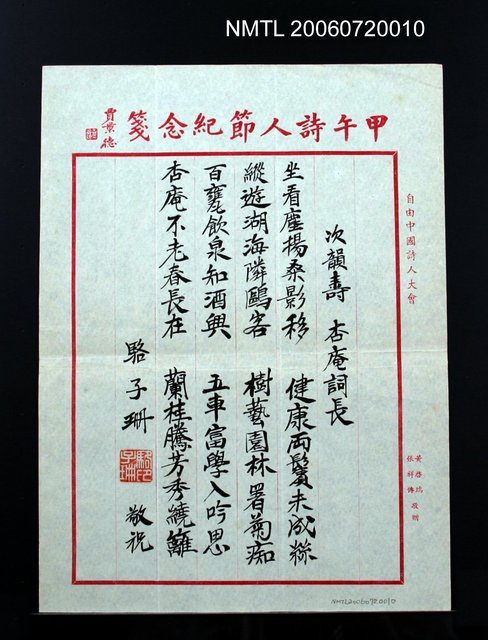 NMTL 20060720010
甲午詩人節紀念箋
賈景德
自由中國詩人大會
黃啓瑞
張祥傳 敬贈
次韻壽 杏庵詞長
坐看塵揚桑影移 健康兩鬢未成絲
縱遊湖海隣鷗客 樹藝園林署菊痴
百甕飲泉知酒興 五車富學入吟思
杏庵不老春長在 蘭桂騰芳秀繞籬
駱子珊 敬祝
駱子珊印
NMTL20060720010